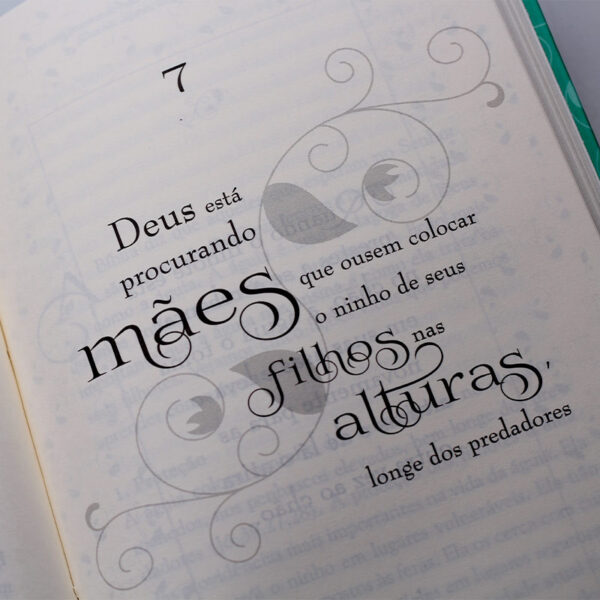 7
Deus está
procurando
mães que ousem colocar
o ninho de seus
filhos nas
alturas,
longe dos predadores